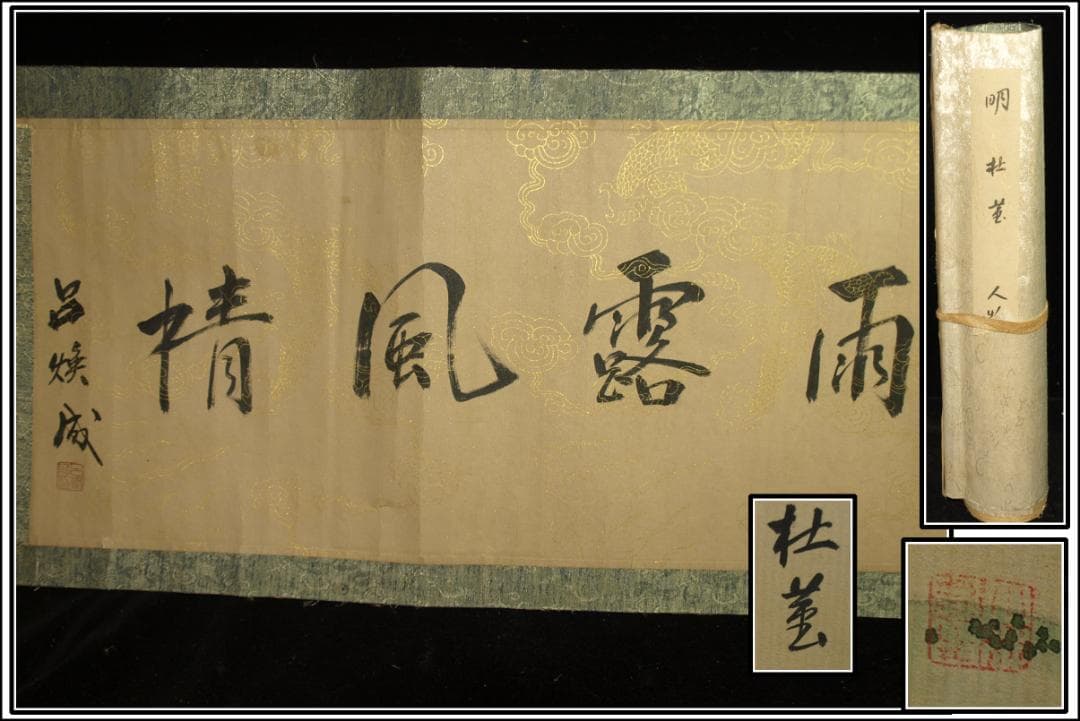 雨露風情
呂煥成
明 杜菫 人
杜菫